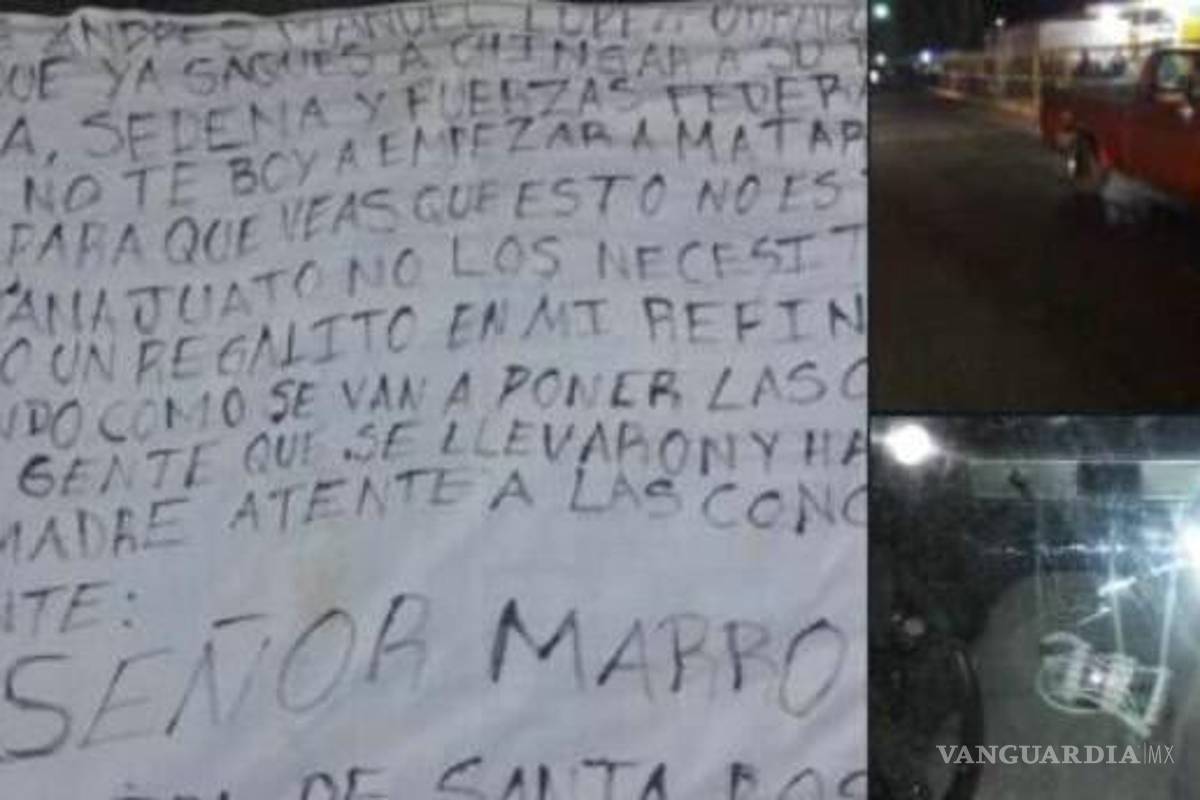 ANDRES MANUEL LOPEZ OBRADO
QUE YA SAQUES A CHINGAR A SU
A, SEDENA Y FUERZAS FEDERA
NO TE BOY A EMPEZAR A MATAR
PARA QUE VEAS QUE ESTO NO ES
ANAJUATO NO LOS NECESIT
O UN REGALITO EN MI REFIN
NDO COMO SE VAN A PONER LAS C
GENTE QUE SE LLEVARON Y HA
MADRE ATENTE A LAS CONC
NTE:
SEÑOR MARRO
DE SANTA ROS
VANGUARDIA|MX